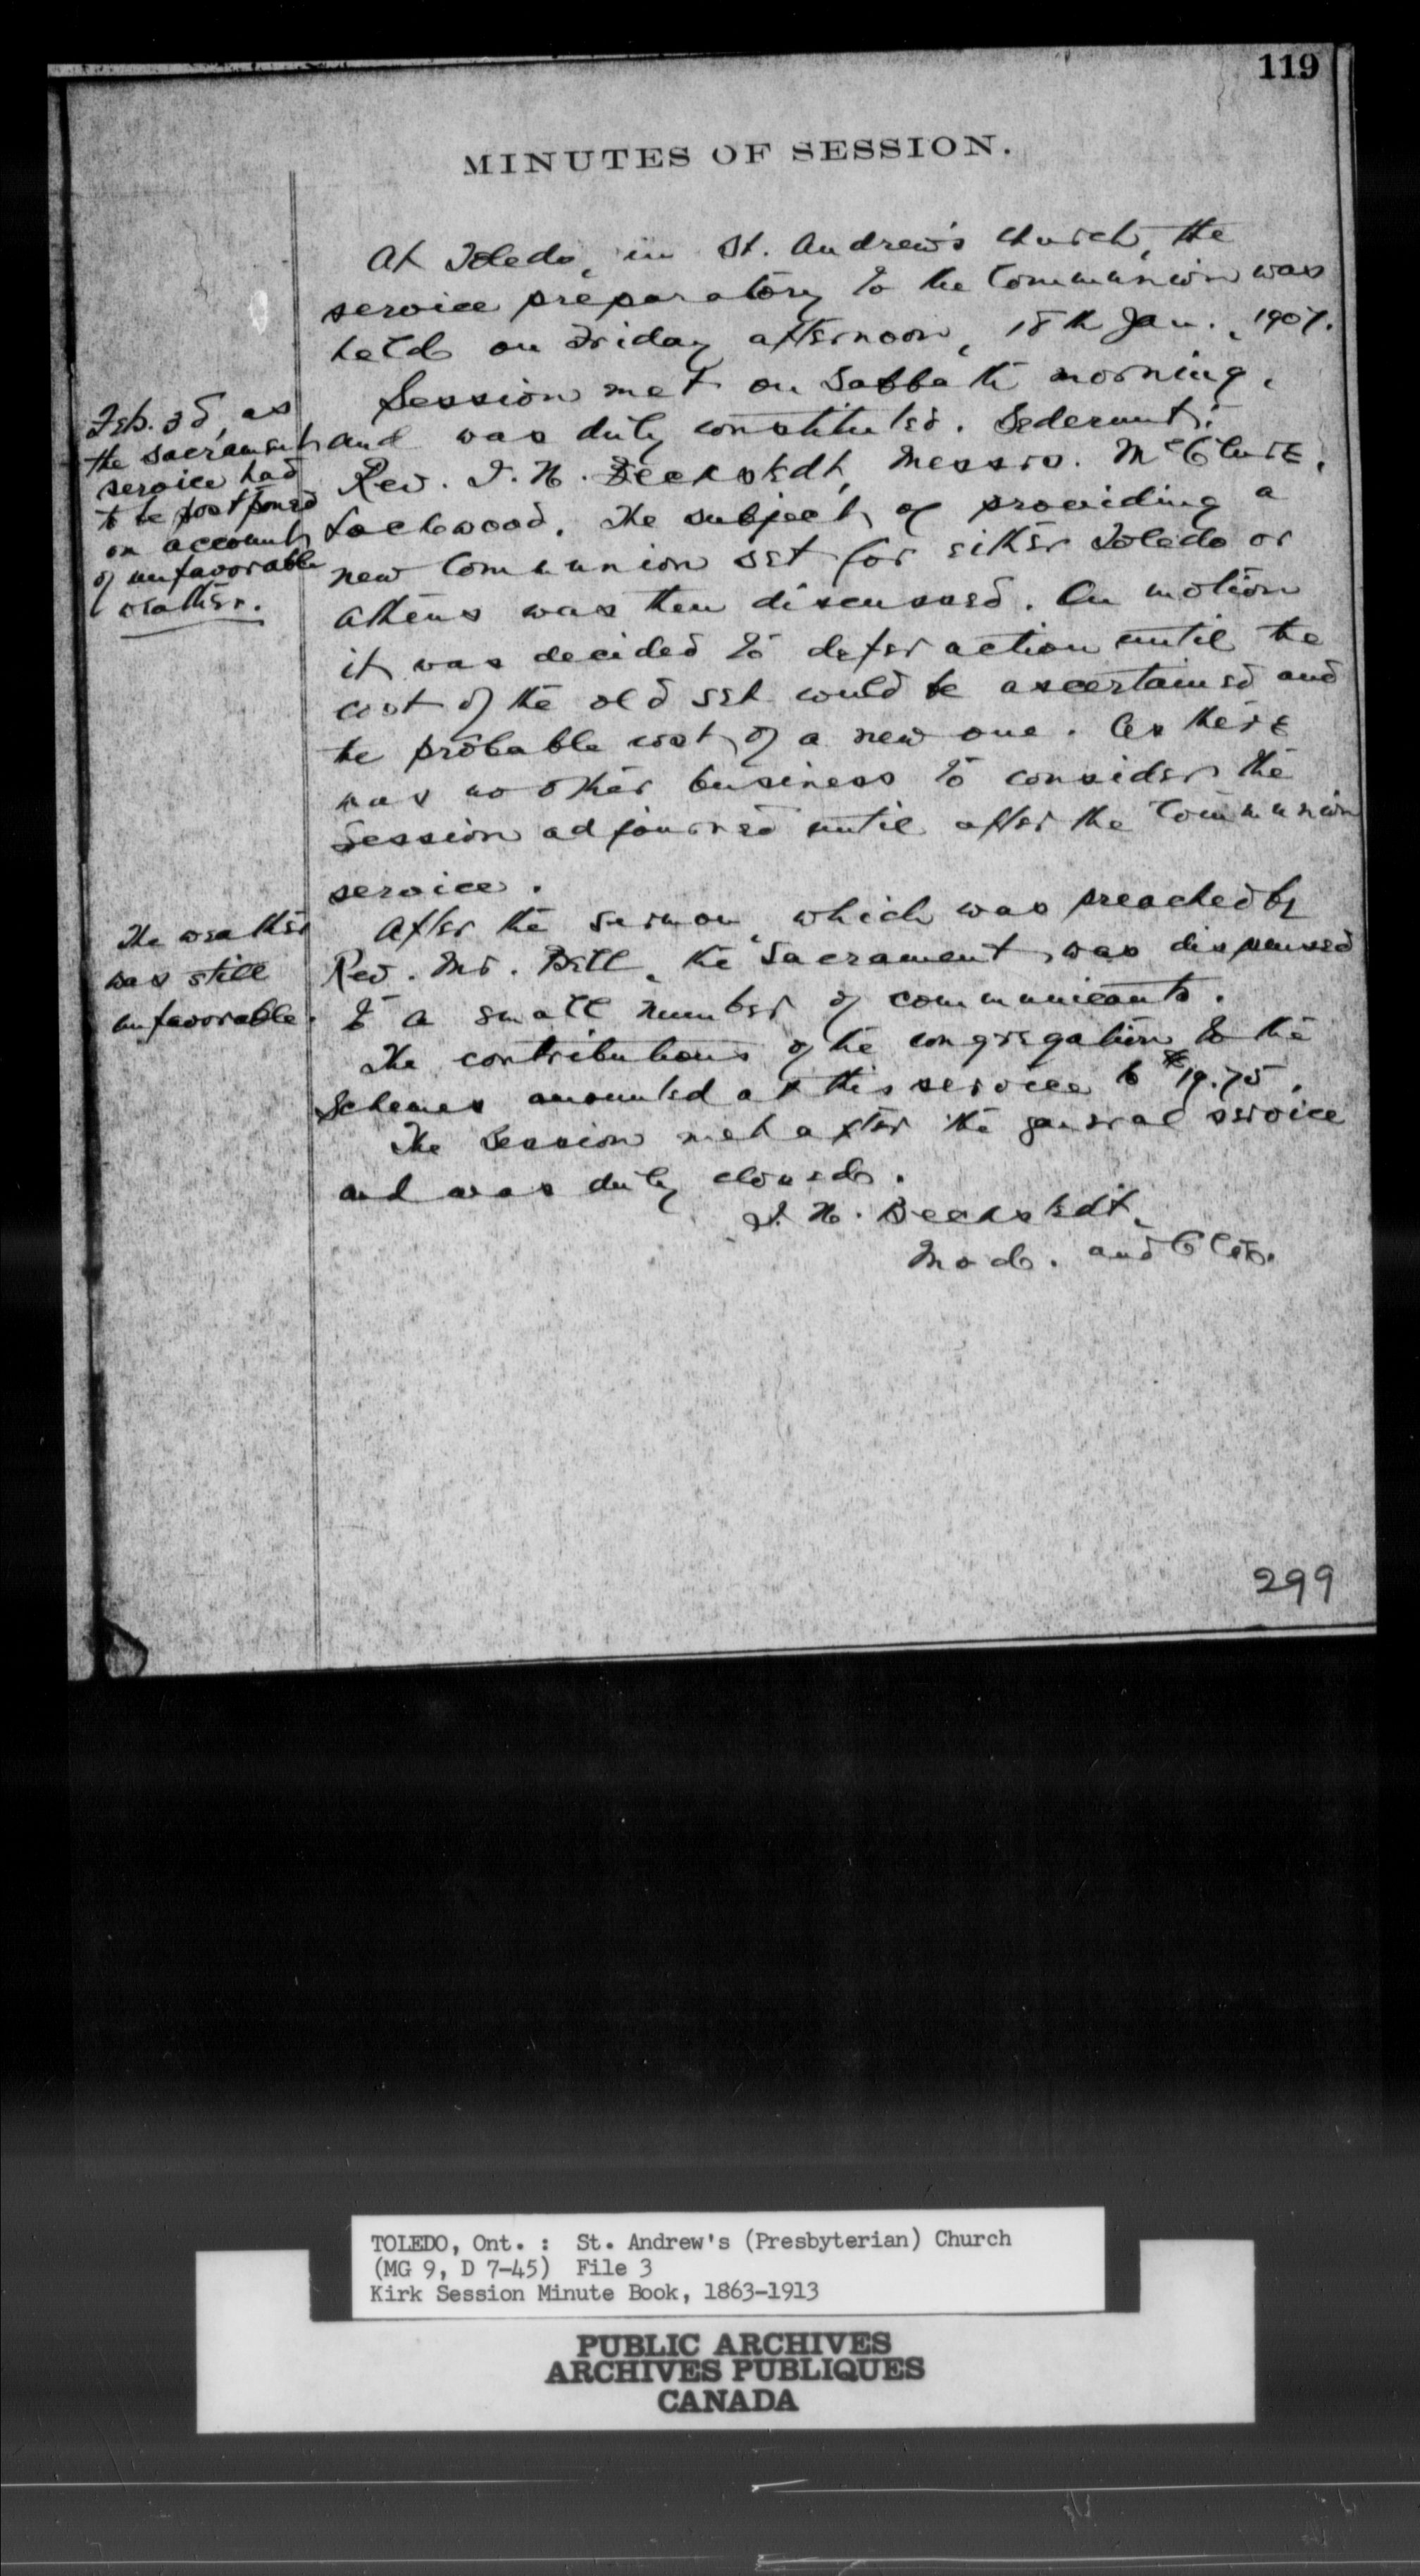 119
MINUTES OF SESSION.
At Toledo, in St. Andrew's church, the
service preparatory to the Communion was
held on Friday afternoon, 18th Jan., 1907.
Session met on Sabbath morning,
Feb. 3d, as
the sacrament
service had
to be postponed
on account
of unfavorable
weather.
and was duly constituted. Sederunt:
Rev. I. N. Beckstedt, Messrs. McClure,
Lockwood. The subject of providing a
new Communion set for either Toledo or
Athens was then discussed. On motion
it was decided to defer action until the
cost of the old set could be ascertained and
the probable cost of a new one. As there
was no other business to consider the
Session adjourned until after the Communion
service.
The weather
was still
unfavorable.
After the sermon, which was preached by
Rev. Mr. Bell, the Sacrament was dispensed
to a small number of communicants.
The contributions of the congregation to the
Schemes amounted at this service to $19.75.
The Session met after the general service
and was duly closed.
I. N. Beckstedt,
Mod. and Clk.
299
TOLEDO, Ont. : St. Andrew's (Presbyterian) Church
(MG 9, D 7-45) File 3
Kirk Session Minute Book, 1863-1913
PUBLIC ARCHIVES
ARCHIVES PUBLIQUES
CANADA